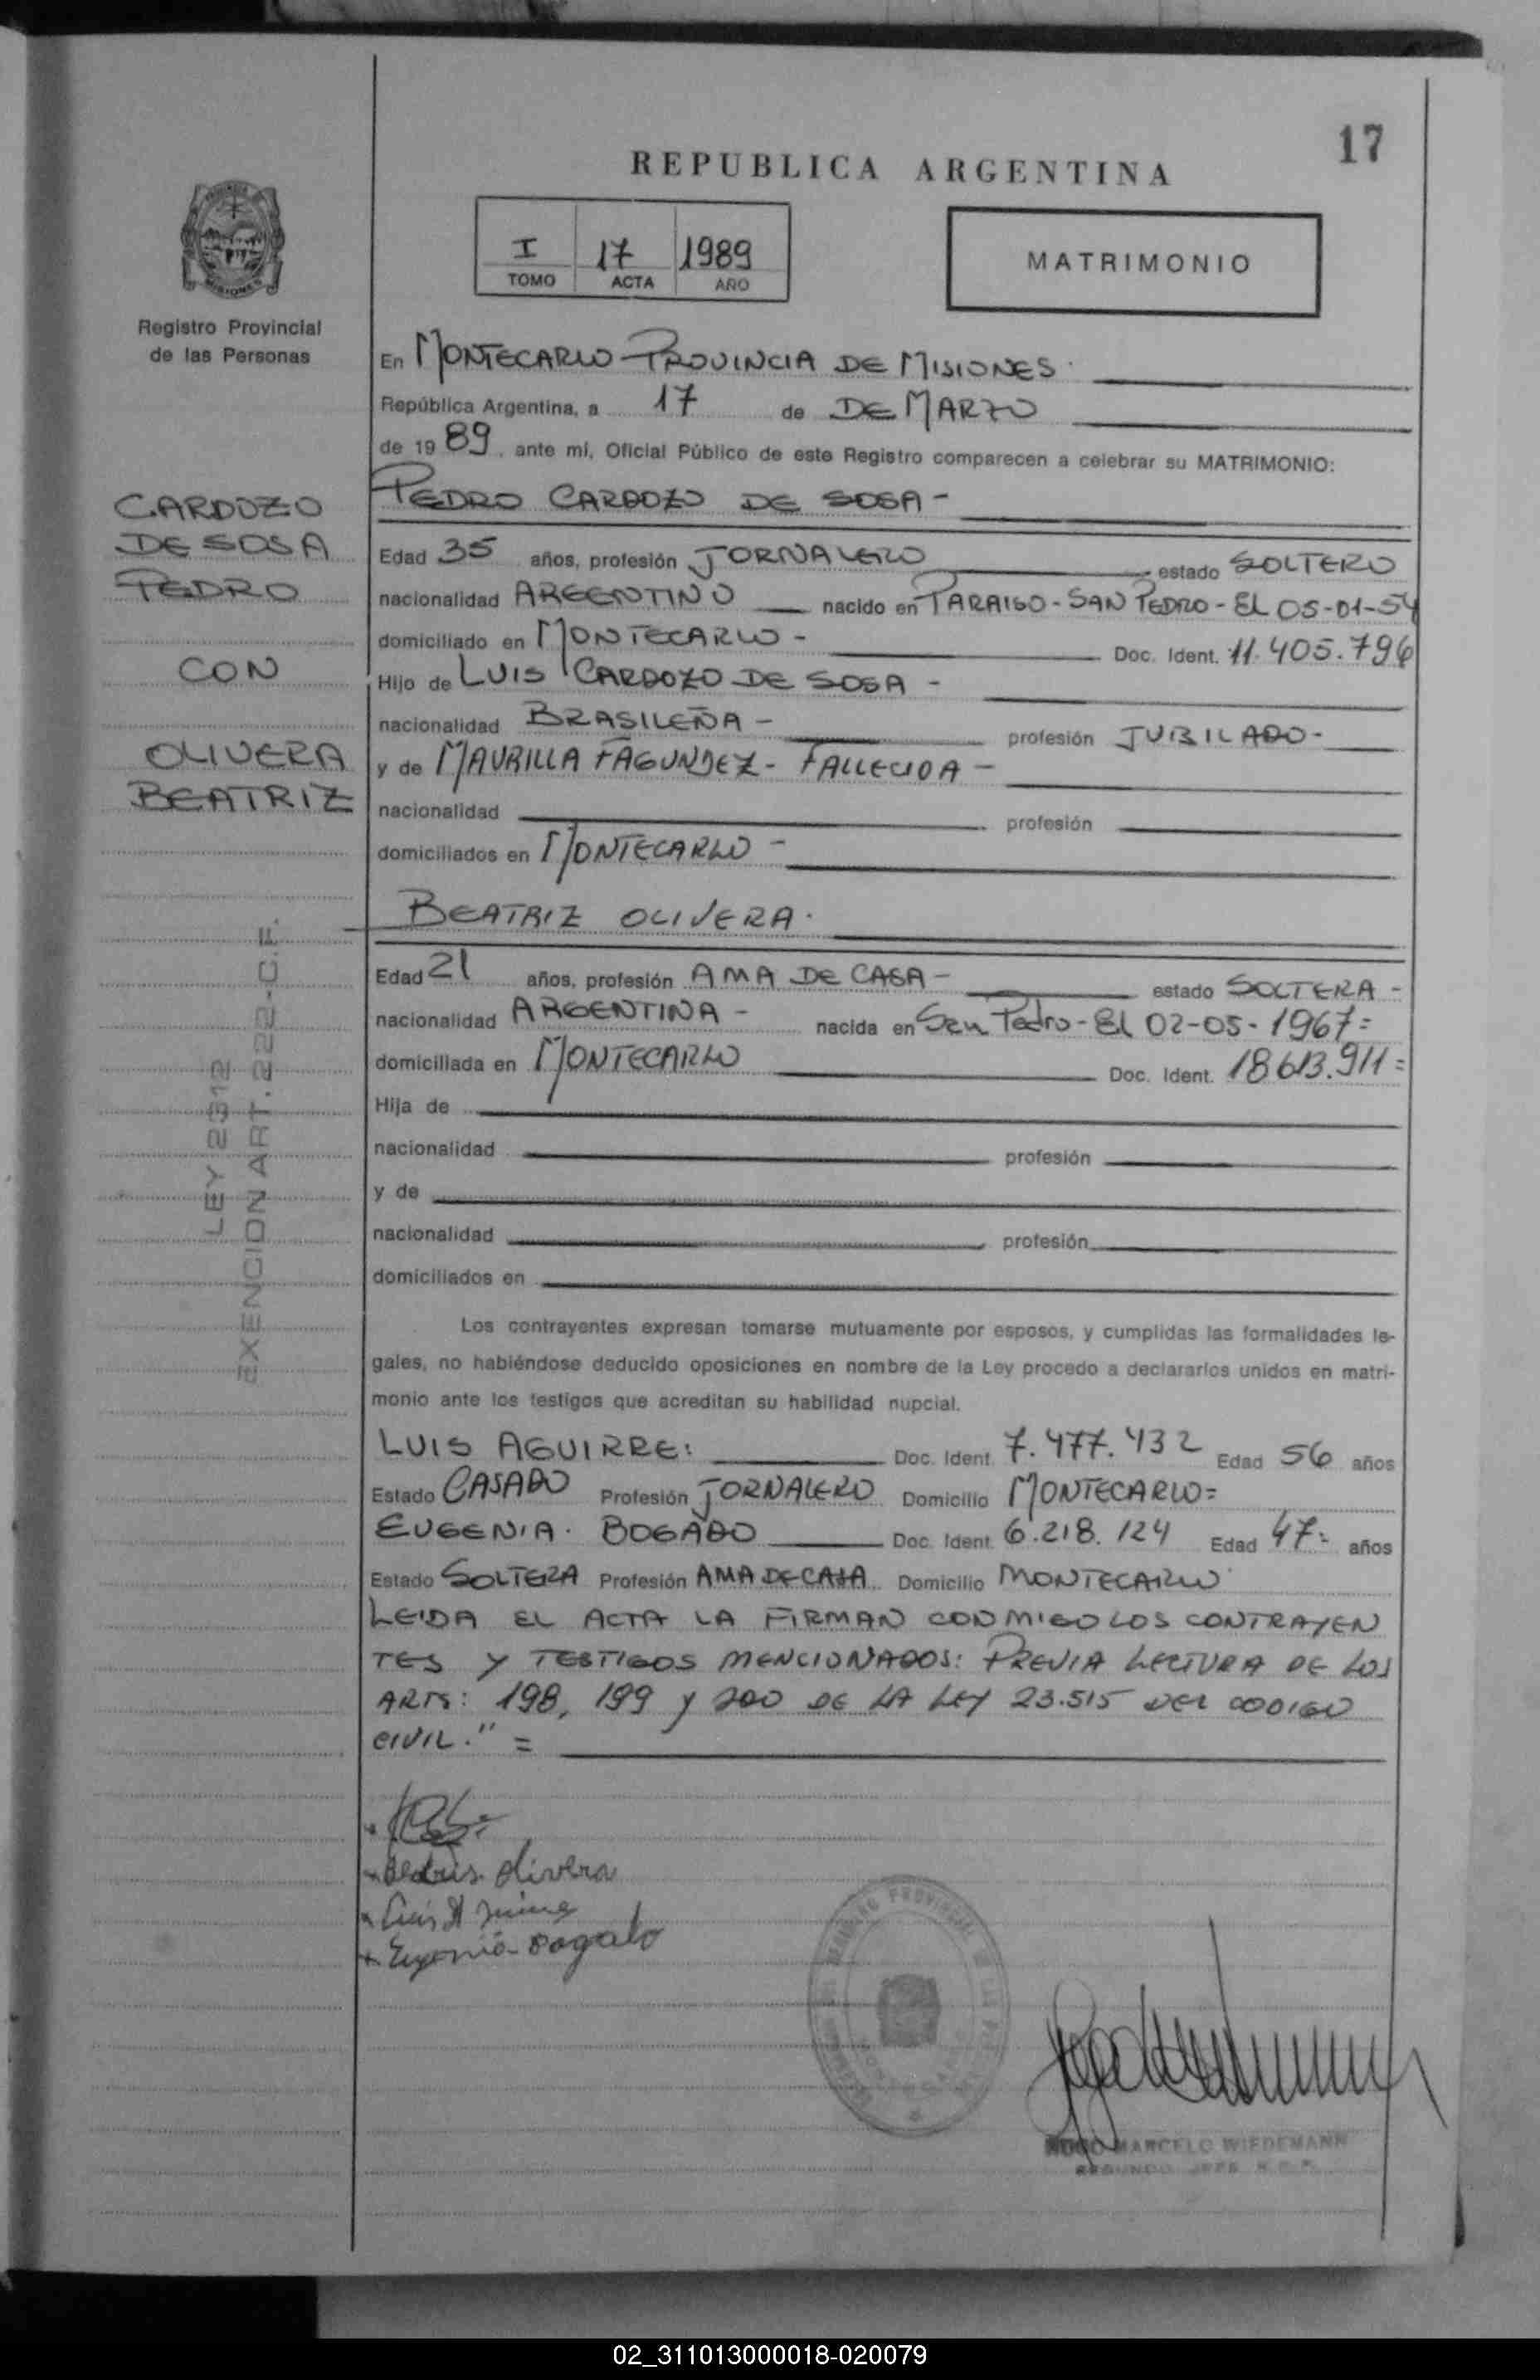 17
REPUBLICA ARGENTINA
I 17 1989
TOMO ACTA AÑO
MATRIMONIO
Registro Provincial
de las Personas
CARDOZO
DE SOSA
PEDRO
CON
OLIVERA
BEATRIZ
LEY 2312
EXENCION ART. 222-C.F.
En MONTECARLO-PROVINCIA DE MISIONES.
República Argentina, a 17 de DE MARZO
de 1989, ante mí, Oficial Público de este Registro comparecen a celebrar su MATRIMONIO:
PEDRO CARDOZO DE SOSA-
Edad 35 años, profesión JORNALERO estado SOLTERO
nacionalidad ARGENTINO nacido en PARAISO-SAN PEDRO-EL 05-01-54
domiciliado en MONTECARLO- Doc. Ident. 11.405.796
Hijo de LUIS CARDOZO DE SOSA-
nacionalidad BRASILEÑA- profesión JUBILADO-
y de MAURILLA FAGUNDEZ- FALLECIDA-
nacionalidad profesión
domiciliados en MONTECARLO-
BEATRIZ OLIVERA.
Edad 21 años, profesión AMA DE CASA- estado SOLTERA-
nacionalidad ARGENTINA- nacida en San Pedro-El 02-05-1967=
domiciliada en MONTECARLO Doc. Ident. 18613.911=
Hija de
nacionalidad profesión
y de
nacionalidad profesión
domiciliados en
Los contrayentes expresan tomarse mutuamente por esposos, y cumplidas las formalidades le-
gales, no habiéndose deducido oposiciones en nombre de la Ley procedo a declararlos unidos en matri-
monio ante los testigos que acreditan su habilidad nupcial.
LUIS AGUIRRE: Doc. Ident. 7.477.432 Edad 56 años
Estado CASADO Profesión JORNALERO Domicilio MONTECARLO=
EUGENIA. BOGADO Doc. Ident. 6.218.124 Edad 47= años
Estado SOLTERA Profesión AMA DE CASA Domicilio MONTECARLO
LEIDA EL ACTA LA FIRMAN CONMIGO LOS CONTRAYEN
TES Y TESTIGOS MENCIONADOS: PREVIA LECTURA DE LOS
ARTS: 198, 199 y 200 DE LA LEY 23.515 DEL CODIGO
CIVIL." =
olivera
Luis
Eugenia Bogado
HUGO MARCELO WIEDEMANN
SEGUNDO JEFE
02_311013000018-020079